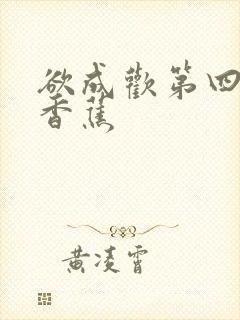 欲成歡第四
香蕉
黄凌霄